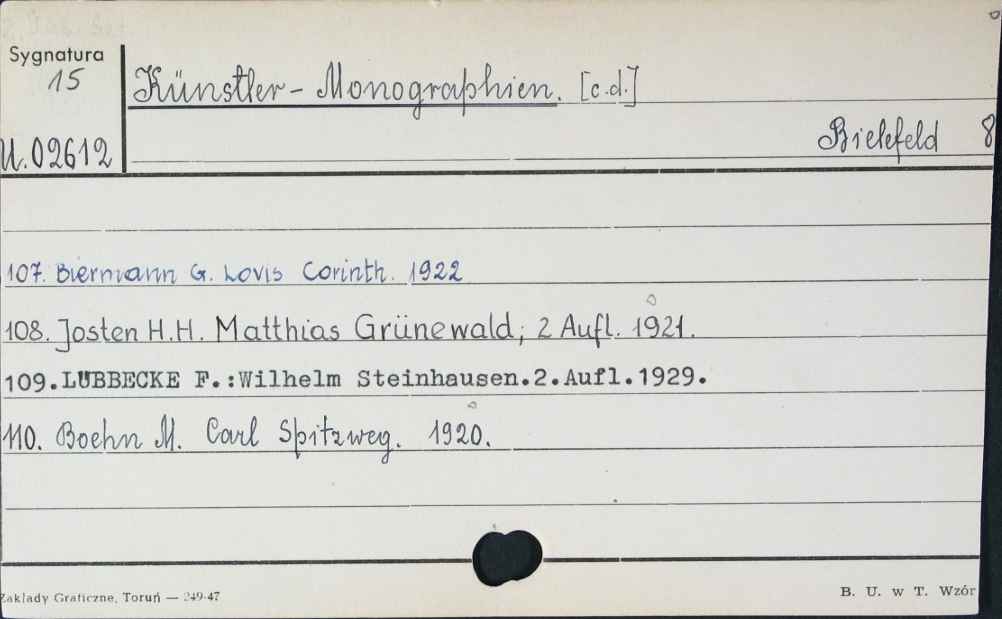 Sygnatura
15
U.02612
Künstler-Monographien. [c.d.]
Bielefeld 8
107. Biermann G. Lovis Corinth. 1922
108. Josten H.H. Matthias Grünewald; 2 Aufl. 1921.
109.LÜBBECKE F.:Wilhelm Steinhausen.2.Aufl.1929.
110. Boehn M. Carl Spitzweg. 1920.
Zakłady Graficzne, Toruń — 249-47
B. U. w T. Wzór